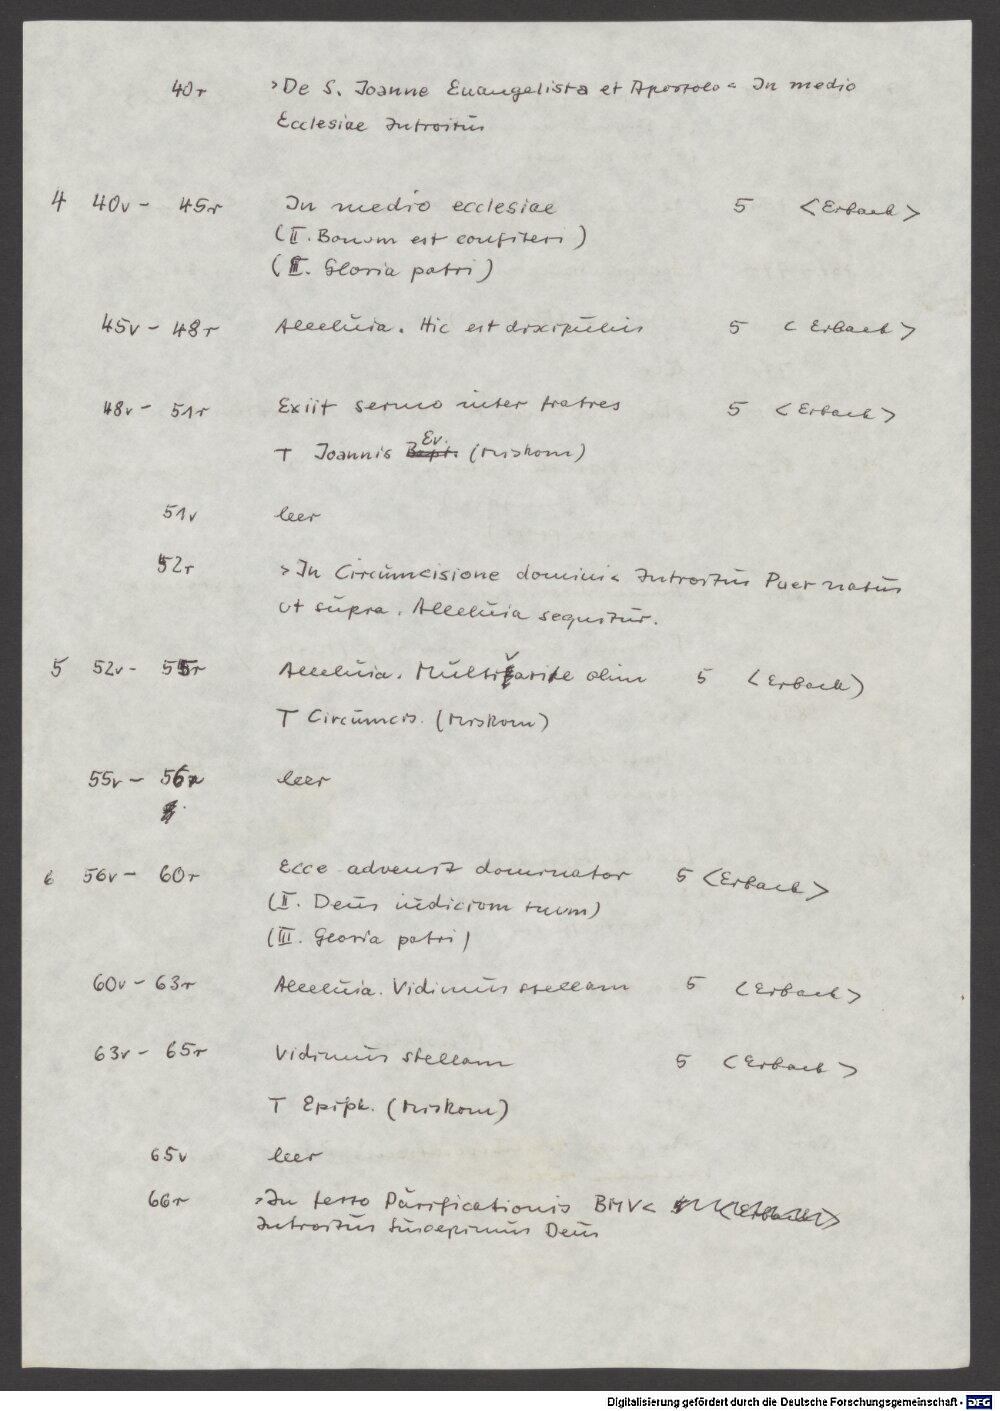 40r >De S. Joanne Euangelista et Apostolo< In medio
Ecclesiae Introitus
4 40v - 45r In medio ecclesiae 5 <Erbach>
(II. Bonum est confiteri)
(III. Gloria patri)
45v - 48r Alleluia. Hic est discipulus 5 <Erbach>
48v - 51r Exiit sermo inter fratres 5 <Erbach>
Ev.
T Joannis Bapt. (Miskom)
51v leer
52r >In Circumcisione domini< Introitus Puer natus
ut supra. Alleluia sequitur.
5 52v - 55r Alleluia. Multifarie olim 5 <Erbach>
T Circumcis. (Miskom)
55v - 56r leer
6 56v - 60r Ecce advenit dominator 5 <Erbach>
(II. Deus iudicium tuum)
(III. Gloria patri)
60v - 63r Alleluia. Vidimus stellam 5 <Erbach>
63v - 65r Vidimus stellam 5 <Erbach>
T Epiph. (Miskom)
65v leer
66r >In festo Purificationis BMV< 5 <Erbach>
Introitus Suscepimus Deus
Digitalisierung gefördert durch die Deutsche Forschungsgemeinschaft - DFG